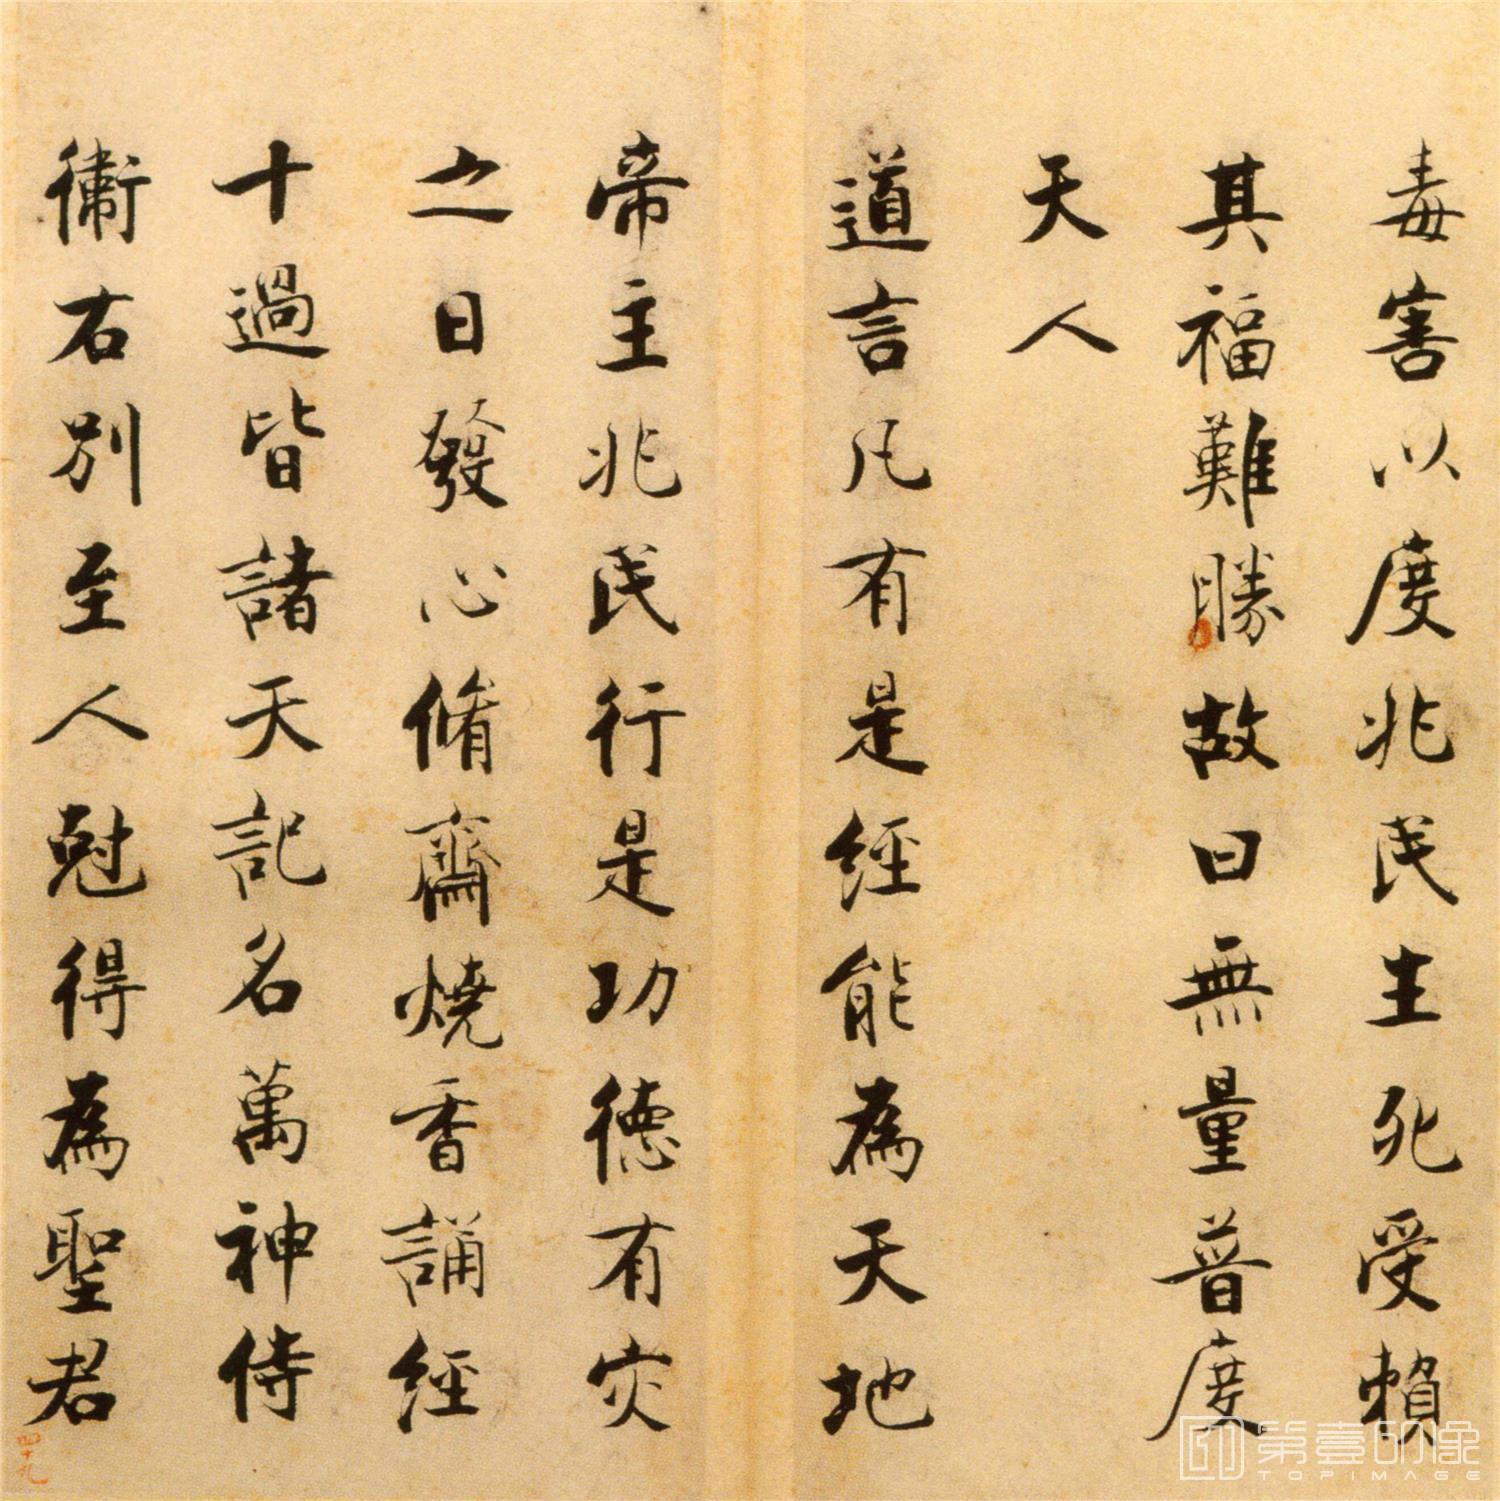 毒害以度兆民生死受賴
其福難勝故曰無量普度
天人
道言凡有是經能為天地
帝主兆民行是功德有灾
之日發心脩齋燒香誦經
十過皆諸天記名萬神侍
衛右別至人尅得為聖君
四十九
第壹印象
TOPIMAGE